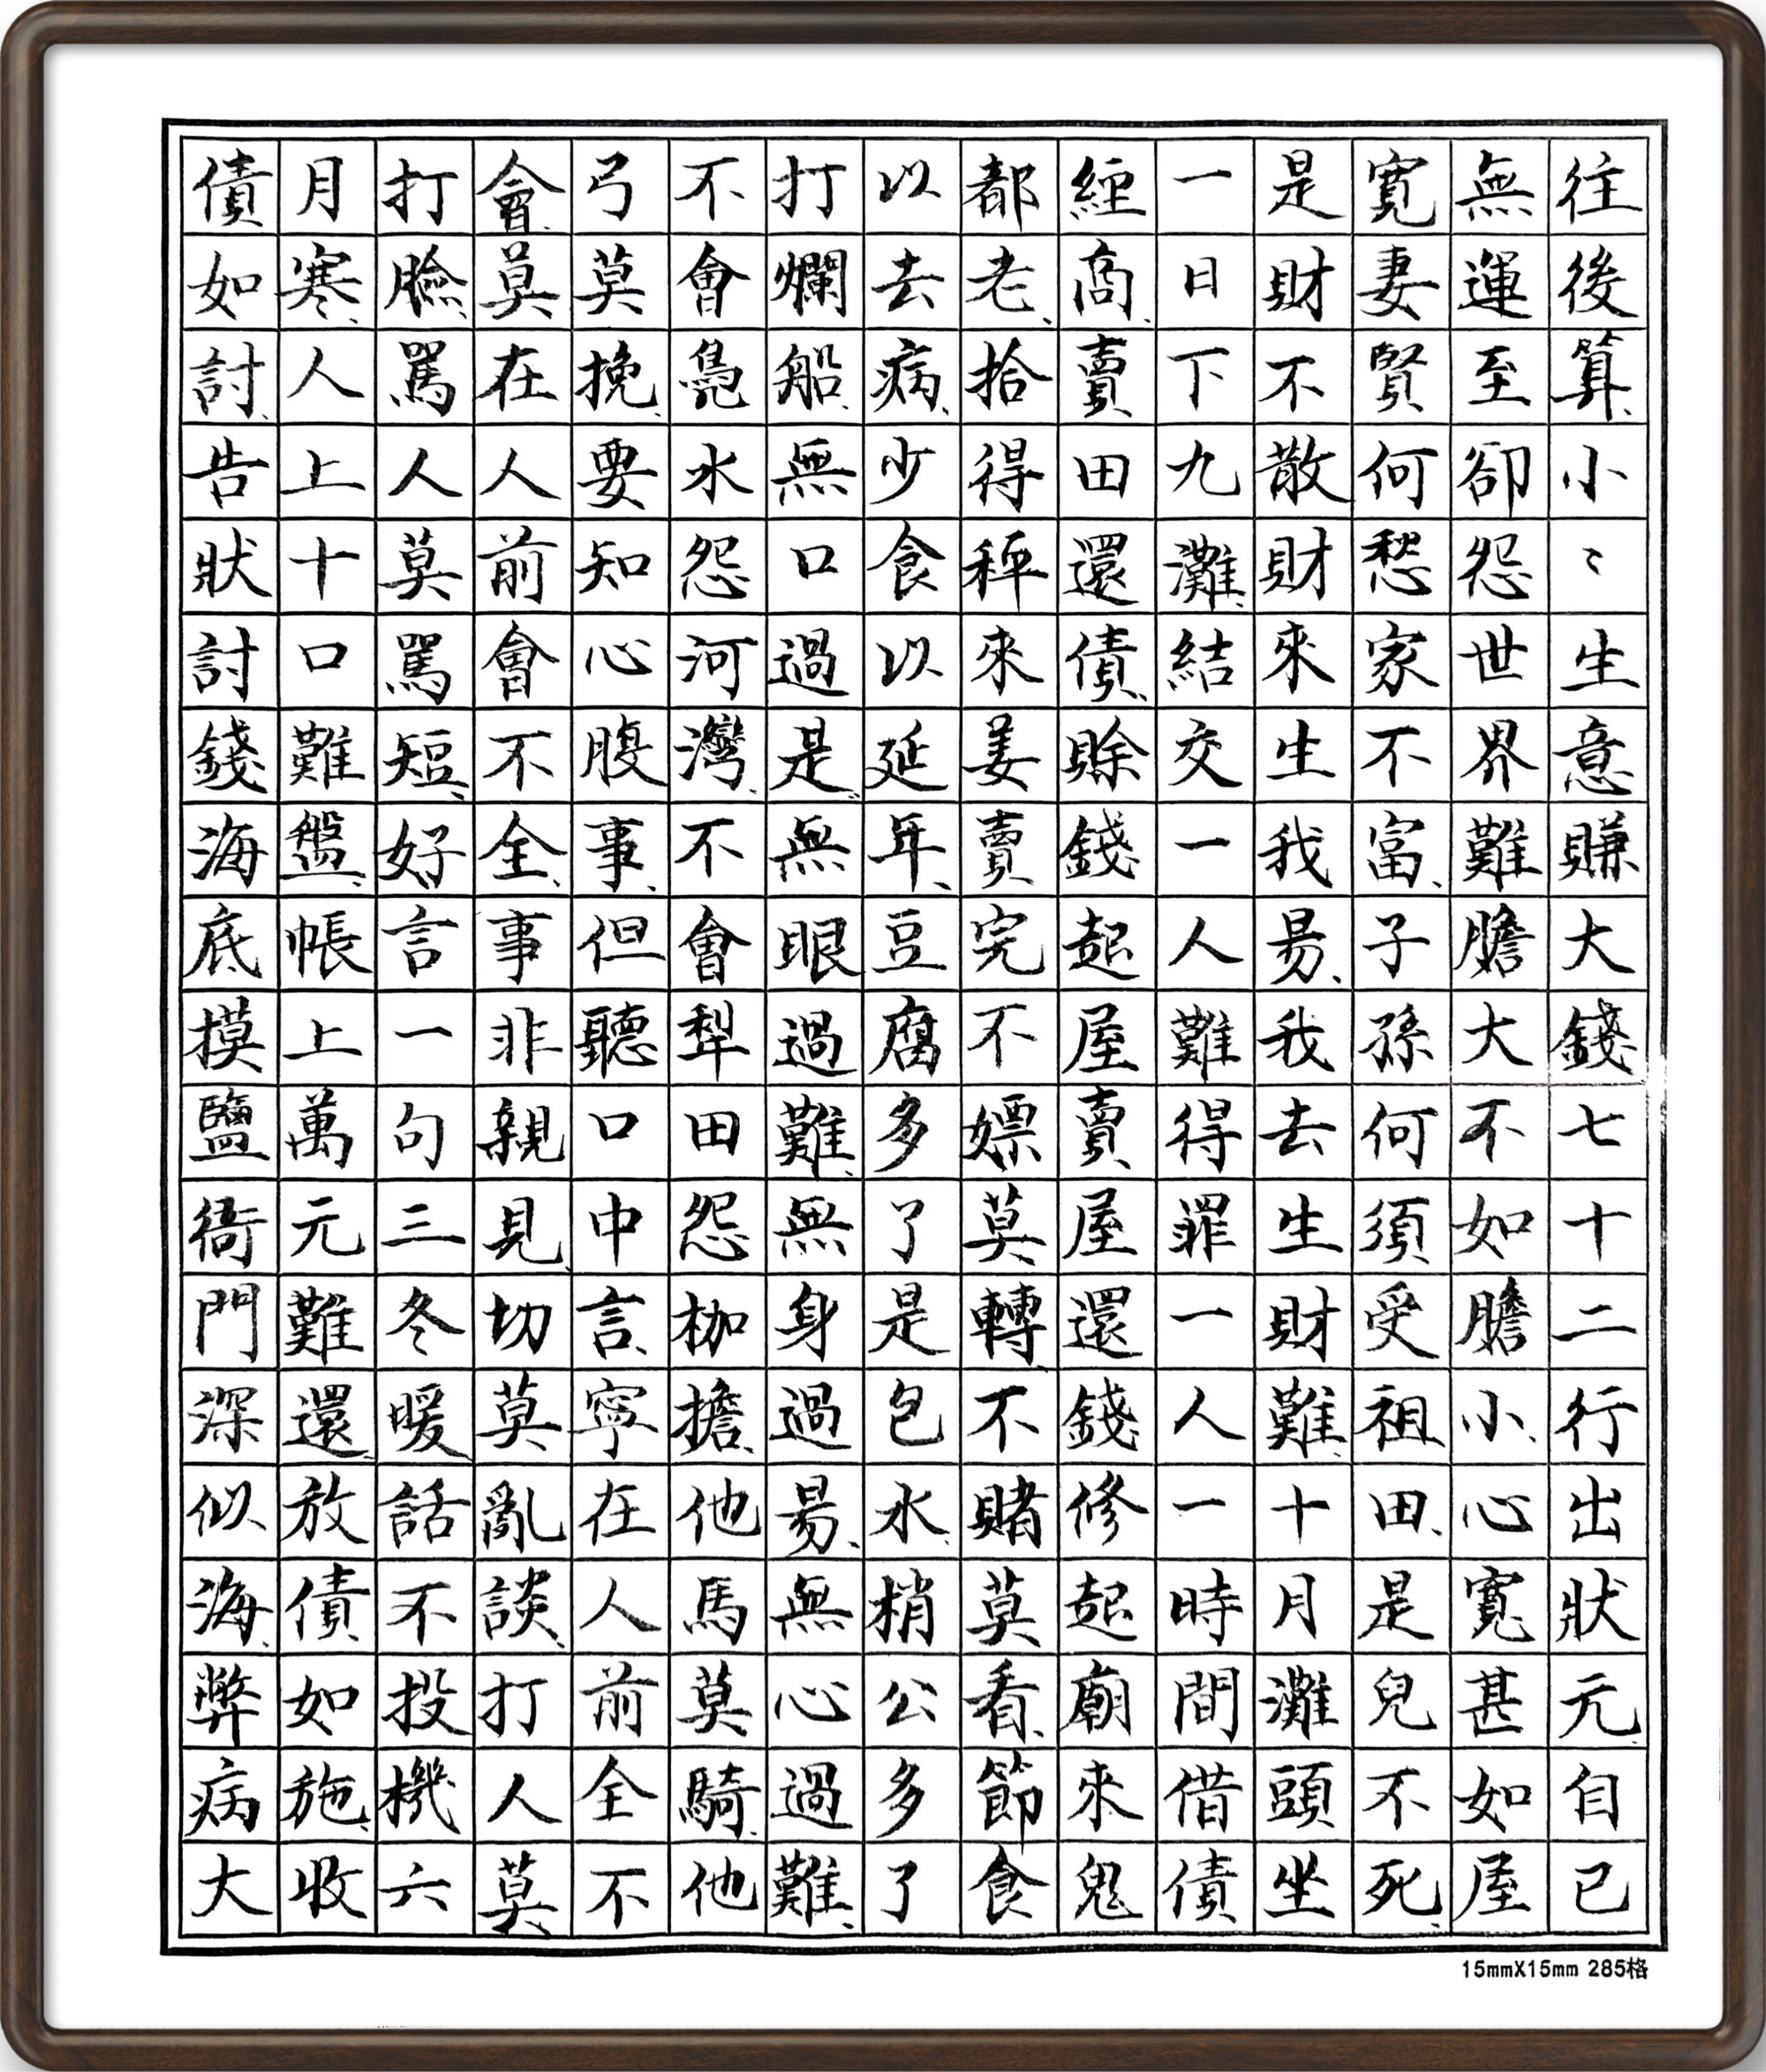 往後算、小〻生意賺大錢七十二行出狀元、自己
無運至卻怨世界難膽大不如膽小、心寬甚如屋
寬妻賢何愁家不富、子孫何須受祖田、是兒不死、
是財不散財來生我易、我去生財難、十月灘頭坐
一日下九灘、結交一人難得罪一人一時間借債
經商、賣田還債、賒錢起屋賣屋還錢修起廟來鬼
都老、拾得秤來姜賣完不嫖莫轉、不賭莫看、節食
以去病、少食以延年、豆腐多了是包水、梢公多了
打爛船、無口過是、無眼過難、無身過易、無心過難、
不會鳧水怨河灣、不會犁田怨枷擔、他馬莫騎、他
弓莫挽、要知心腹事、但聽口中言、寧在人前全不
會、莫在人前會不全、事非親見、切莫亂談、打人莫、
打臉、罵人莫罵短、好言一句三冬暖話不投機六
月寒、人上十口難盤、帳上萬元難還、放債如施、收
債如討、告狀討錢海底摸鹽衙門深似海、弊病大
15mmX15mm 285格